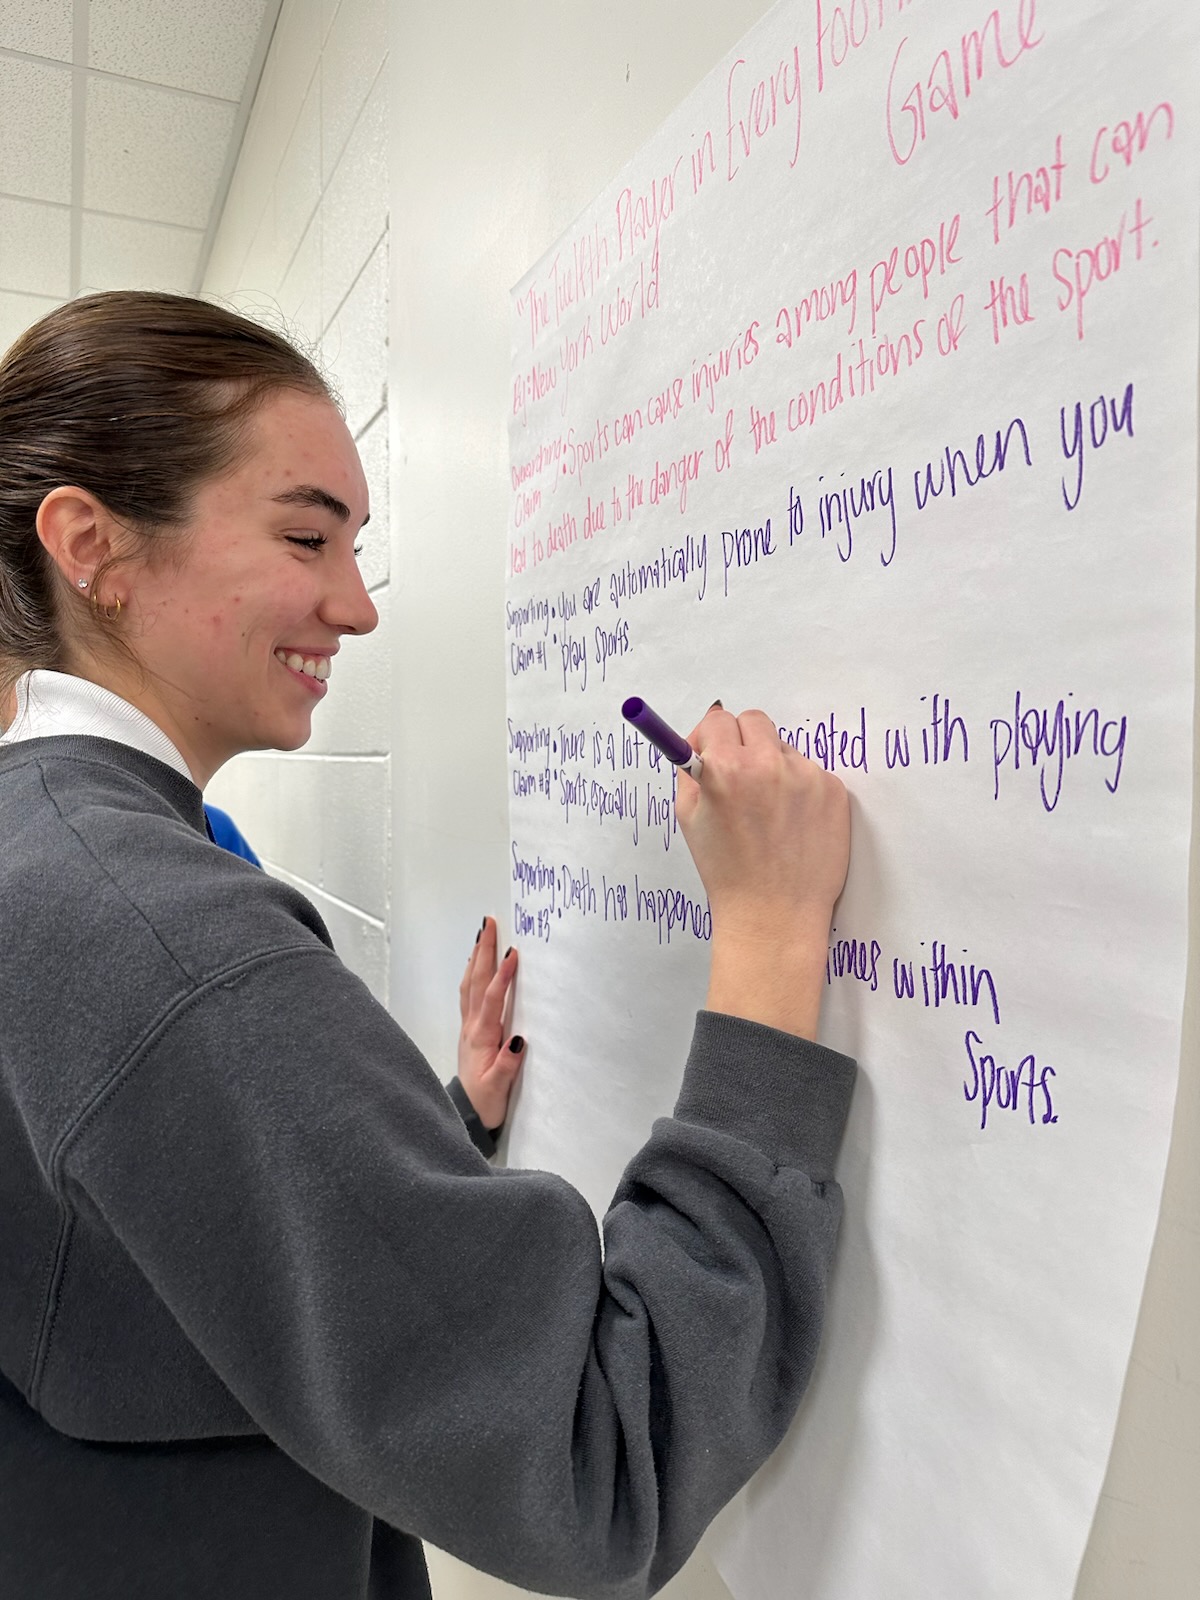 "The Twelfth Player in Every
Game
By: New York World
Overarching: Sports can cause injuries among people that can
Claim
lead to death due to the danger of the conditions of the sport.
Supporting: You are automatically prone to injury when you
Claim #1: play sports.
Supporting: There is a lot with playing
Claim #2: Sports, especially
Supporting: Death has happened within
Claim #3:
Sports.